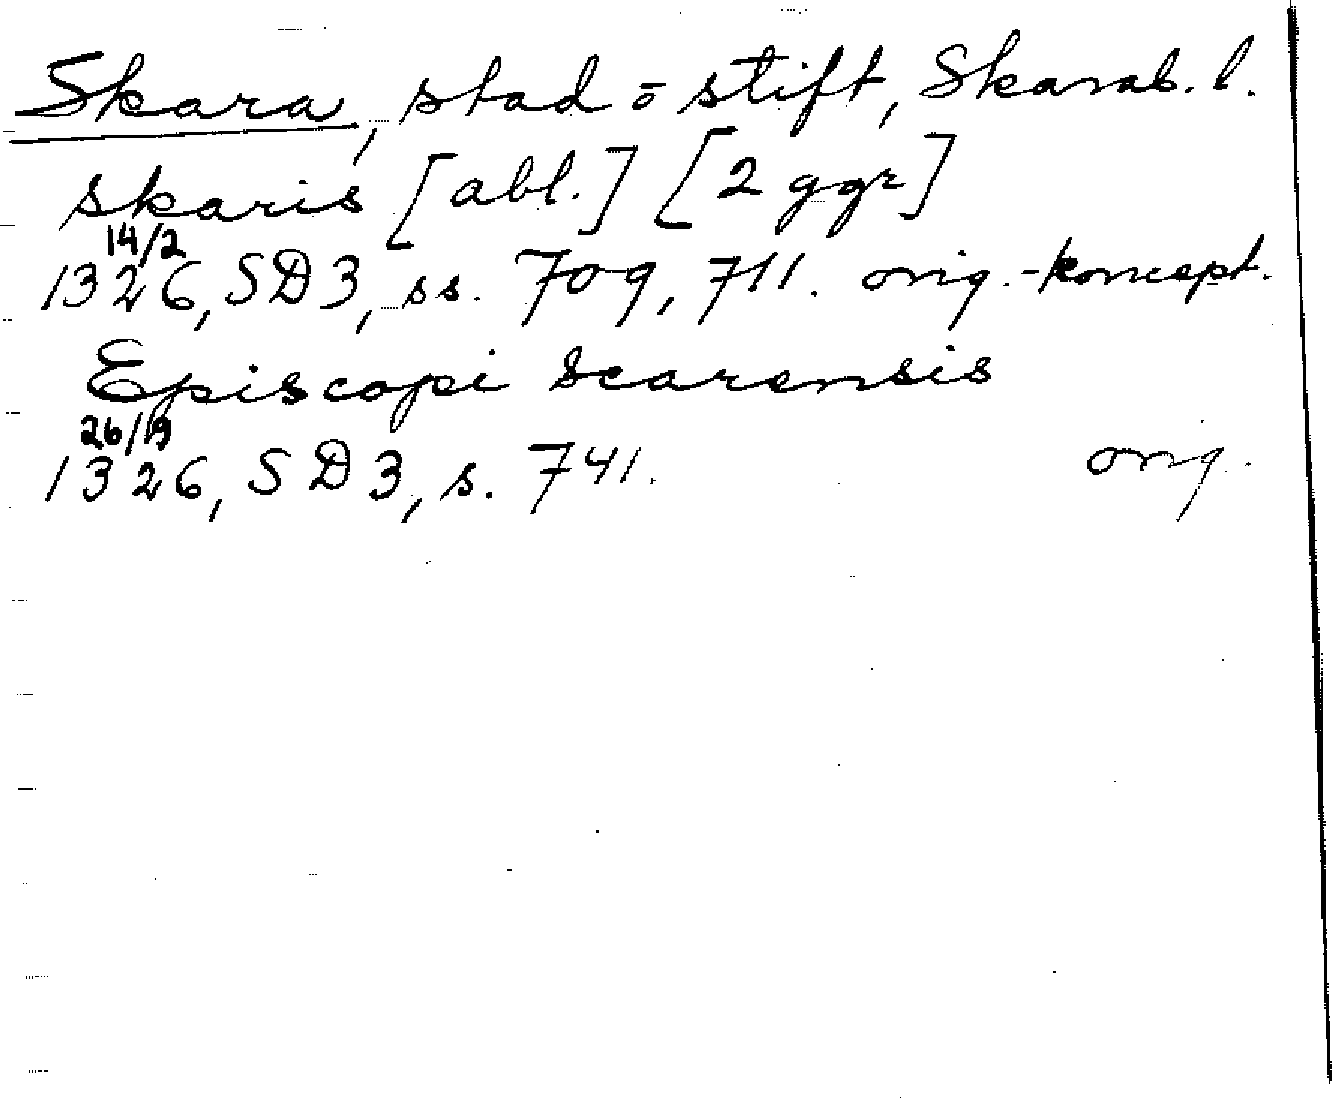 Skara, stad o stift, Skarab. l.
skaris [abl.] [2 ggr]
14/2
1326, SD3, ss. 709, 711. orig.-koncept.
Episcopi scarensis
26/9
1326, SD3, s. 741. orig.